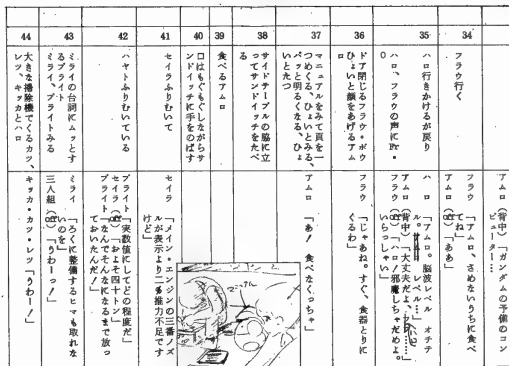 アムロ（背中）「ガンダムの予備のコン
ピューター…
34
フラウ行く
フラウ「アムロ、さめないうちに食べ
てね」
アムロ（off）「ああ」
35
ハロ行きかけるが戻り
ハロ、フラウの声にFr・
O
ハロ「アムロ。脳波レベル オチテ
ル。レベル…
アムロ（背中）「大丈夫だよ、
フラウ（off）「ハロ！邪魔しちゃだめよ。
いらっしゃい」
36
ドア閉じるフラウ・ボウ
ひょいと顔をあげるアム
ロ
フラウ「じゃあね。すぐ、食器とりに
くるわ」
37
マニュアルをみて頁を一
つめくる、ひょいとみる、
パッと明るくなる、ひょ
いとたつ
アムロ「あ！ 食べなくっちゃ」
38
サイドテーブルの脇に立
ってサンドイッチをたべ
る
39
食べるアムロ
40
口はもぐもぐしながらサ
ンドイッチに手をのばす
41
セイラふりむいて
セイラ「メイン・エンジンの三番ノズ
ルが表示より二%推力不足です
けど」
42
ハヤトふりむいている
ブライト「実数値にしてどの程度だ」
セイラ（off）「およそ四十トン」
ブライト「なんでそんなになるまで放っ
ておいたんだ！」
43
ミライの台詞にムッとす
るブライト
ミライ、ブライトみる
ミライ「ろくに整備するヒマも取れな
いのを」
三人組（off）「うわーっ！」
44
大きな掃除機でくるカツ、
レツ、キッカとハロ
キッカ・カツ・レツ「うわー！」